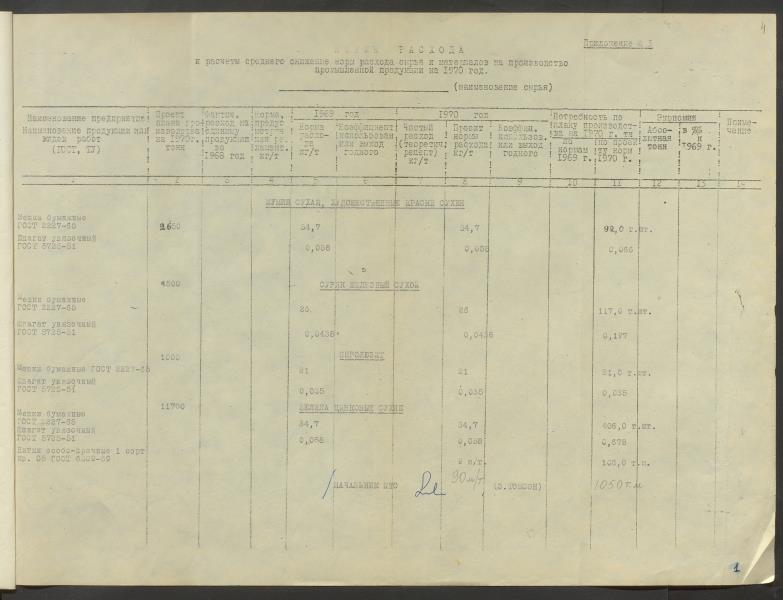 4
Приложение № 1
НОРМЫ РАСХОДА
и расчеты среднего снижение норм расхода сырья и материалов на производство
промышленной продукции на 1970 год.
(наименование сырья)
Наименование предприятия
Наименование продукции или видов работ (ГОСТ, ТУ)
Проект плана производства на 1970г. тонн
Фактич. расход на единицу продукции во 1968 год
Норма, кг/т
1969 год
Норма расхода кг/т
Коэффициент использован. или выход годного
1970 год
Чистый расход (теоретич. рецепт) кг/т
Проект нормы расхода кг/т
Коэффиц. использов. или выход годного
Потребность по плану производства на 1970 г. тн
по нормам 1969 г.
(по проекту норм 1970 г.
Экономия
Абсолютная тонн
в % к 1969 г.
Примечание
1 2 3 4 5 6 7 8 9 10 11 12 13 14
МУМИЯ СУХАЯ, ХУДОЖЕСТВЕННЫЕ КРАСКИ СУХИЕ
Мешки бумажные
ГОСТ 2227-65 34,7 34,7 т.шт.
Шпагат увязочный
ГОСТ 5725-51 0,058 0,058 0,066
4500
СУРИК ЖЕЛЕЗНЫЙ СУХОЙ
Мешки бумажные
ГОСТ 2227-65 26 26 117,0 т.шт.
Шпагат увязочный
ГОСТ 5725-51 0,0438 0,0438 0,197
1000
ПИРОЛЮЗИТ
Мешки бумажные ГОСТ 2227-65 21 21 21,0 т.шт.
Шпагат увязочный
ГОСТ 5725-51 0,035 0,035 0,035
11700
БЕЛИЛА ЦИНКОВЫЕ СУХИЕ
Мешки бумажные
ГОСТ 2227-65 34,7 34,7 406,0 т.шт.
Шпагат увязочный
ГОСТ 5725-51 0,058 0,058 0,678
Нитки особо-прочные 1 сорт
ГОСТ 6309-59 9 м/т. 105,0 т.м.
90 м/т
1050 т.м
НАЧАЛЬНИК МТС
1